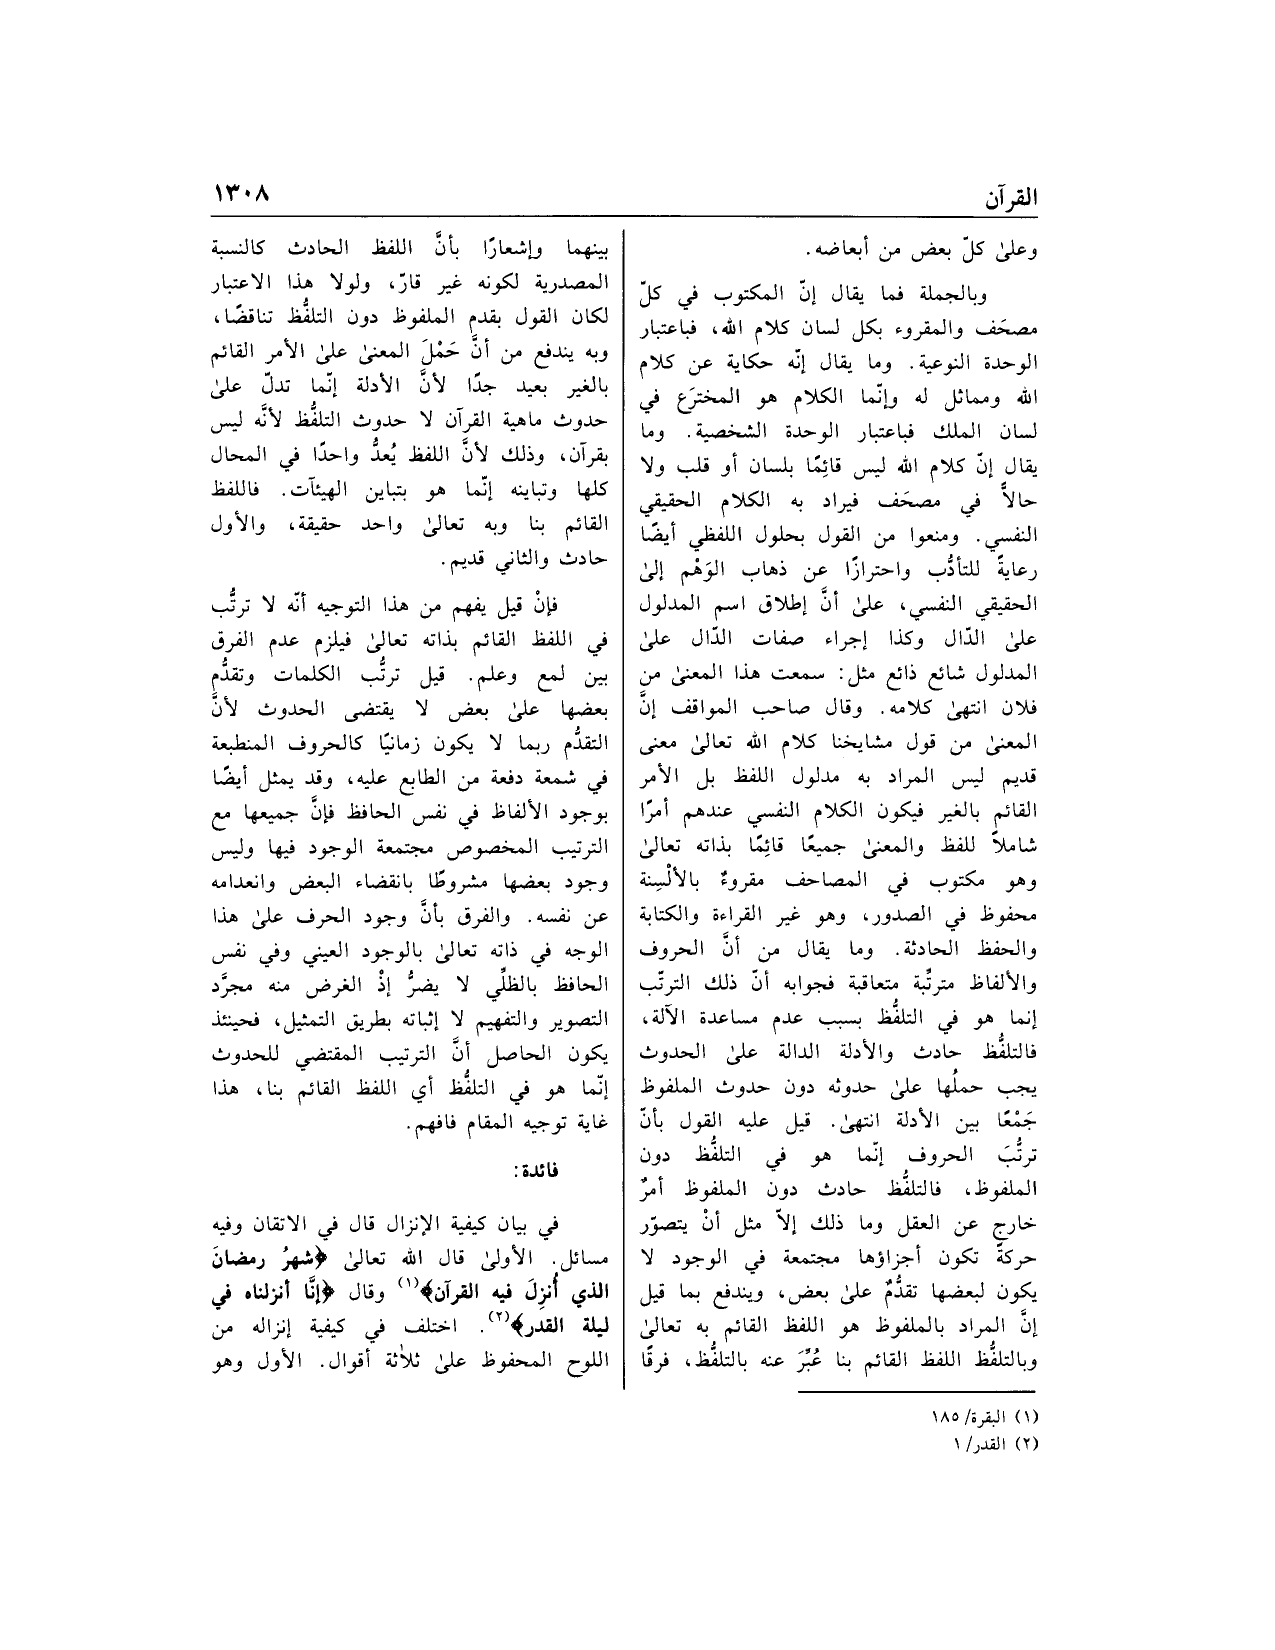 القرآن
١٣٠٨
وعلىٰ كلّ بعض من أبعاضه.
وبالجملة فما يقال إنّ المكتوب في كلّ
مصحَف والمقروء بكل لسان كلام الله، فباعتبار
الوحدة النوعية. وما يقال إنّه حكاية عن كلام
الله ومماثل له وإنّما الكلام هو المخترَع في
لسان الملك فباعتبار الوحدة الشخصية. وما
يقال إنّ كلام الله ليس قائِمًا بلسان أو قلب ولا
حالاًّ في مصحَف فيراد به الكلام الحقيقي
النفسي. ومنعوا من القول بحلول اللفظي أيضًا
رعايةً للتأدُّب واحترازًا عن ذهاب الوَهْم إلىٰ
الحقيقي النفسي، علىٰ أنَّ إطلاق اسم المدلول
علىٰ الدّال وكذا إجراء صفات الدّال علىٰ
المدلول شائع ذائع مثل: سمعت هذا المعنىٰ من
فلان انتهىٰ كلامه. وقال صاحب المواقف إنَّ
المعنىٰ من قول مشايخنا كلام الله تعالىٰ معنى
قديم ليس المراد به مدلول اللفظ بل الأمر
القائم بالغير فيكون الكلام النفسي عندهم أمرًا
شاملاً للفظ والمعنىٰ جميعًا قائِمًا بذاته تعالىٰ
وهو مكتوب في المصاحف مقروءٌ بالألْسِنة
محفوظ في الصدور، وهو غير القراءة والكتابة
والحفظ الحادثة. وما يقال من أنَّ الحروف
والألفاظ مترتِّبة متعاقبة فجوابه أنّ ذلك الترتّب
إنما هو في التلفُّظ بسبب عدم مساعدة الآلة،
فالتلفُّظ حادث والأدلة الدالة علىٰ الحدوث
يجب حملُها علىٰ حدوثه دون حدوث الملفوظ
جَمْعًا بين الأدلة انتهىٰ. قيل عليه القول بأنّ
ترتُّبَ الحروف إنّما هو في التلفُّظ دون
الملفوظ، فالتلفُّظ حادث دون الملفوظ أمرٌ
خارج عن العقل وما ذلك إلاّ مثل أنْ يتصوّر
حركةً تكون أجزاؤها مجتمعة في الوجود لا
يكون لبعضها تقدُّمٌ علىٰ بعض، ويندفع بما قيل
إنَّ المراد بالملفوظ هو اللفظ القائم به تعالىٰ
وبالتلفُّظ اللفظ القائم بنا عُبِّرَ عنه بالتلفُّظ، فرقًا
بينهما وإشعارًا بأنَّ اللفظ الحادث كالنسبة
المصدرية لكونه غير قارّ، ولولا هذا الاعتبار
لكان القول بقدم الملفوظ دون التلفُّظ تناقضًا،
وبه يندفع من أنَّ حَمْلَ المعنىٰ علىٰ الأمر القائم
بالغير بعيد جدًا لأنَّ الأدلة إنّما تدلّ علىٰ
حدوث ماهية القرآن لا حدوث التلفُّظ لأنَّه ليس
بقرآن، وذلك لأنَّ اللفظ يُعدُّ واحدًا في المحال
كلها وتباينه إنّما هو بتباين الهيئآت. فاللفظ
القائم بنا وبه تعالىٰ واحد حقيقة، والأول
حادث والثاني قديم.
فإنْ قيل يفهم من هذا التوجيه أنّه لا ترتُّب
في اللفظ القائم بذاته تعالىٰ فيلزم عدم الفرق
بين لمع وعلم. قيل ترتُّب الكلمات وتقدُّم
بعضها علىٰ بعض لا يقتضى الحدوث لأنَّ
التقدُّم ربما لا يكون زمانيًا كالحروف المنطبعة
في شمعة دفعة من الطابع عليه، وقد يمثل أيضًا
بوجود الألفاظ في نفس الحافظ فإنَّ جميعها مع
الترتيب المخصوص مجتمعة الوجود فيها وليس
وجود بعضها مشروطًا بانقضاء البعض وانعدامه
عن نفسه. والفرق بأنَّ وجود الحرف علىٰ هذا
الوجه في ذاته تعالىٰ بالوجود العيني وفي نفس
الحافظ بالظلِّي لا يضرُّ إذْ الغرض منه مجرَّد
التصوير والتفهيم لا إثباته بطريق التمثيل، فحينئذ
يكون الحاصل أنَّ الترتيب المقتضي للحدوث
إنّما هو في التلفُّظ أي اللفظ القائم بنا، هذا
غاية توجيه المقام فافهم.
فائدة:
في بيان كيفية الإنزال قال في الاتقان وفيه
مسائل. الأولىٰ قال الله تعالىٰ ﴿شهرُ رمضانَ
الذي أُنزِلَ فيه القرآن﴾(١) وقال ﴿إنَّا أنزلناه في
ليلة القدر﴾(٢). اختلف في كيفية إنزاله من
اللوح المحفوظ علىٰ ثلاثة أقوال. الأول وهو
(١) البقرة/ ١٨٥
(٢) القدر/ ١